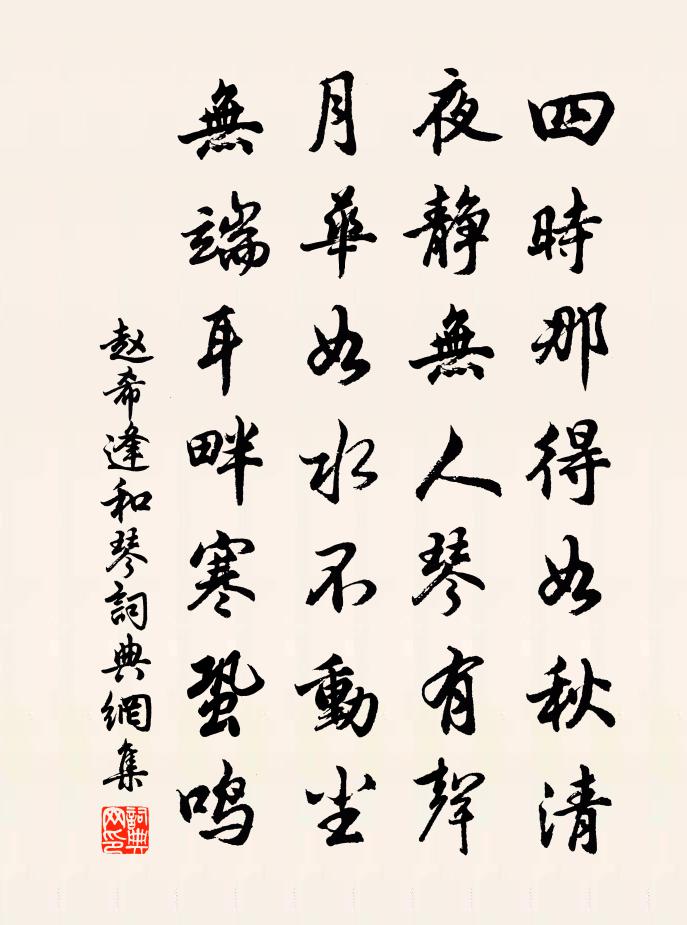 四時那得如秋清
夜静無人琴有聲
月華如水不動尘
無端耳畔寒蛩鸣
赵希逢和琴詞典網集
詞典网印